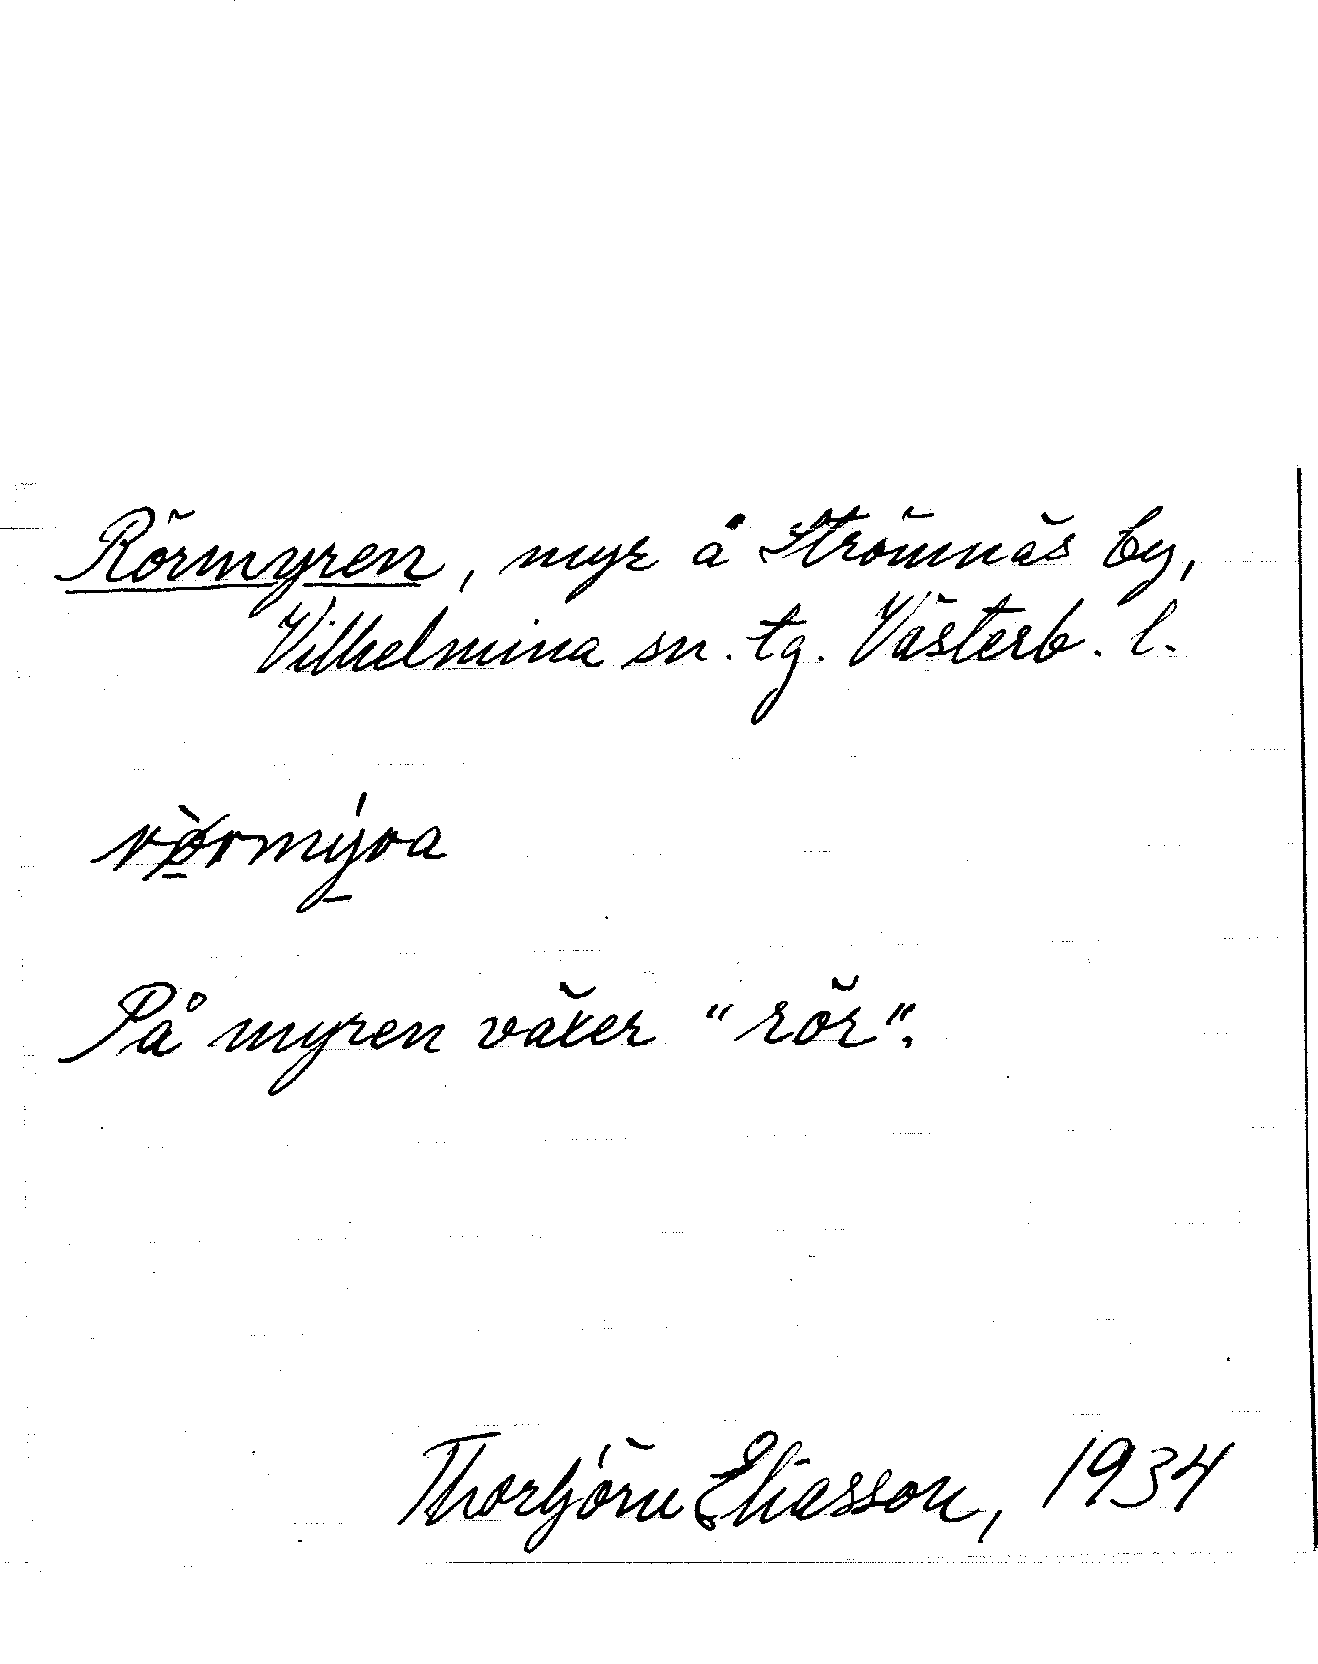 Rörmyren, myr å Strömnäs by,
Vilhelmina sn. tg. Västerb. l.
rø̀rmýra
På myren växer "rör".
Thorbjörn Eliasson, 1934